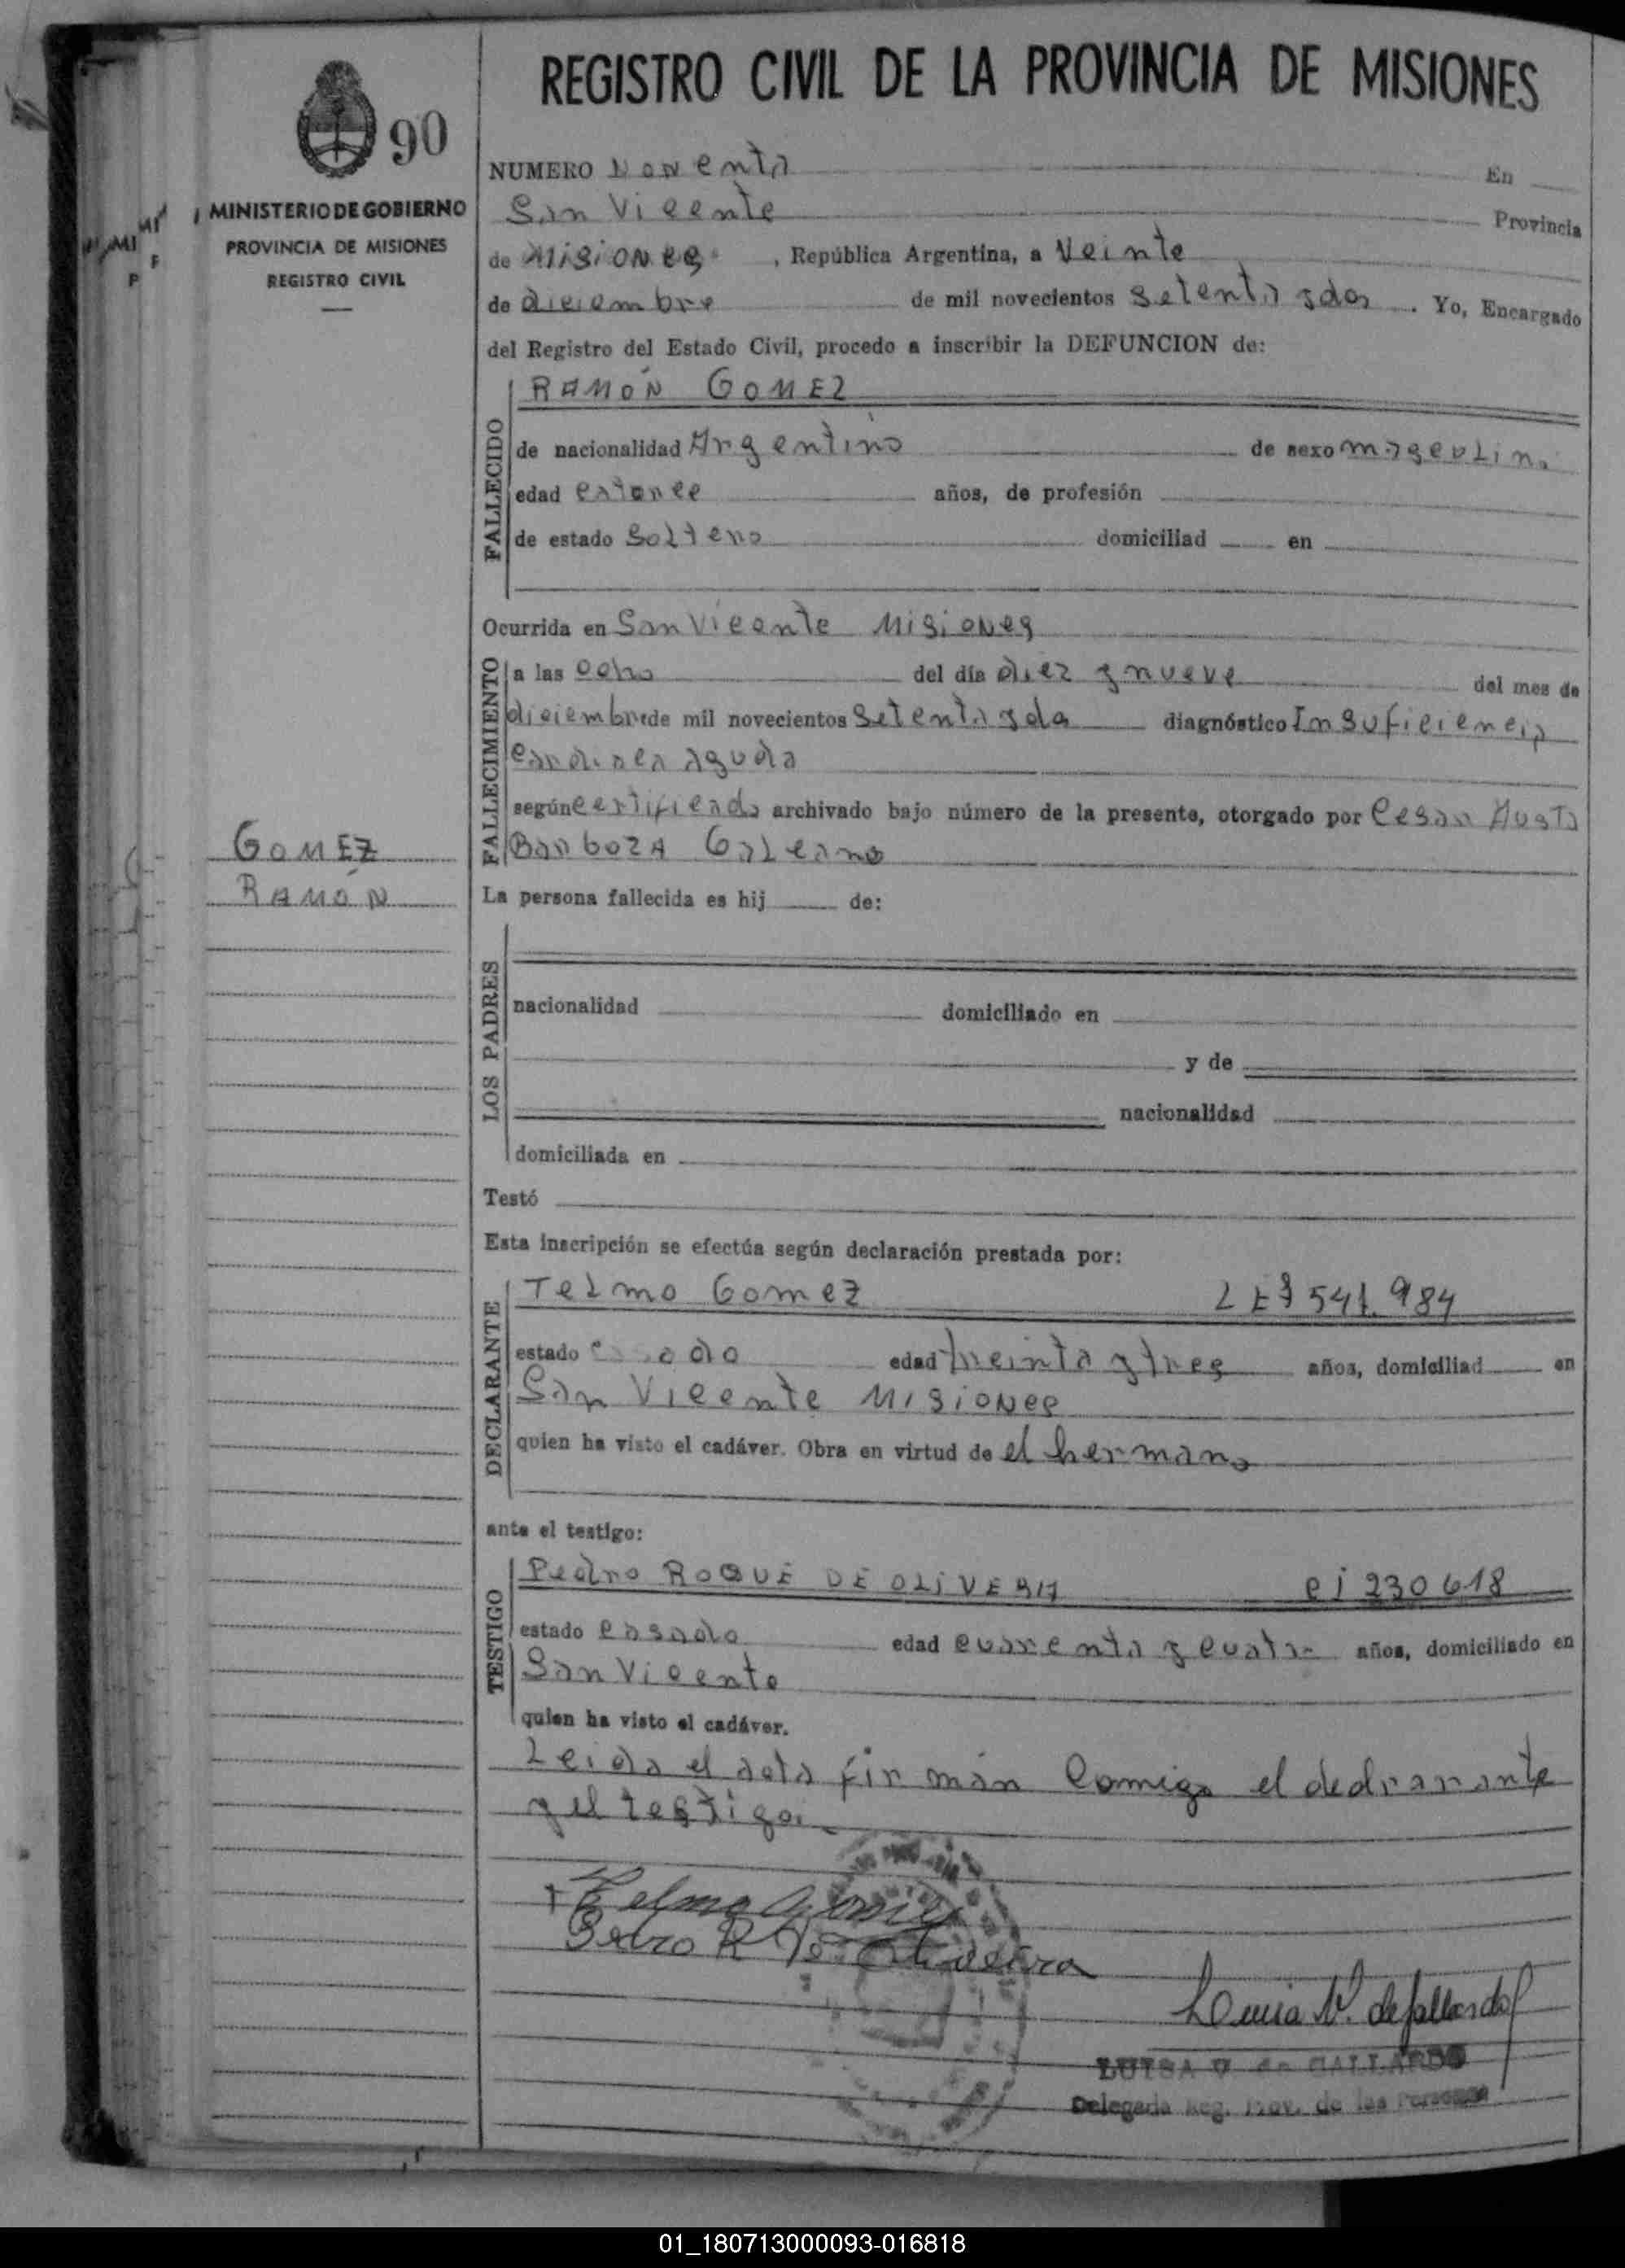 REGISTRO CIVIL DE LA PROVINCIA DE MISIONES
90
MINISTERIO DE GOBIERNO
PROVINCIA DE MISIONES
REGISTRO CIVIL
GOMEZ
RAMÓN
NUMERO Noventa En
San Vicente Provincia
de Misiones , República Argentina, a Veinte
de diciembre de mil novecientos Setenta y dos . Yo, Encargado
del Registro del Estado Civil, procedo a inscribir la DEFUNCION de:
FALLECIDO
RAMÓN GOMEZ
de nacionalidad Argentino de sexo masculino
edad catorce años, de profesión
de estado Soltero domiciliad en
Ocurrida en San Vicente Misiones
FALLECIMIENTO
a las ocho del día diez y nueve del mes de
diciembre de mil novecientos Setenta y dos diagnóstico Insuficiencia
Cardiaca aguda
según certificado archivado bajo número de la presente, otorgado por Cesar
Barboza Galeano
La persona fallecida es hij de:
LOS PADRES
nacionalidad domiciliado en
y de
nacionalidad
domiciliada en
Testó
Esta inscripción se efectúa según declaración prestada por:
DECLARANTE
Telmo Gomez LE 7 541.984
estado Casado edad treinta y tres años, domiciliad en
San Vicente Misiones
quien ha visto el cadáver. Obra en virtud de el hermano
ante el testigo:
TESTIGO
Pedro ROQUE DE OLIVERA CI 230618
estado Casado edad cuarenta y cuatro años, domiciliado en
San Vicente
quien ha visto el cadáver.
Leida el acta firman Comigo el declarante
y el testigo.
Telmo Gomez
Pedro R de Oliveira
Luisa V. de Gallardo
LUISA V de GALLARDO
Delegada Reg. Prov. de las Personas
01_180713000093-016818